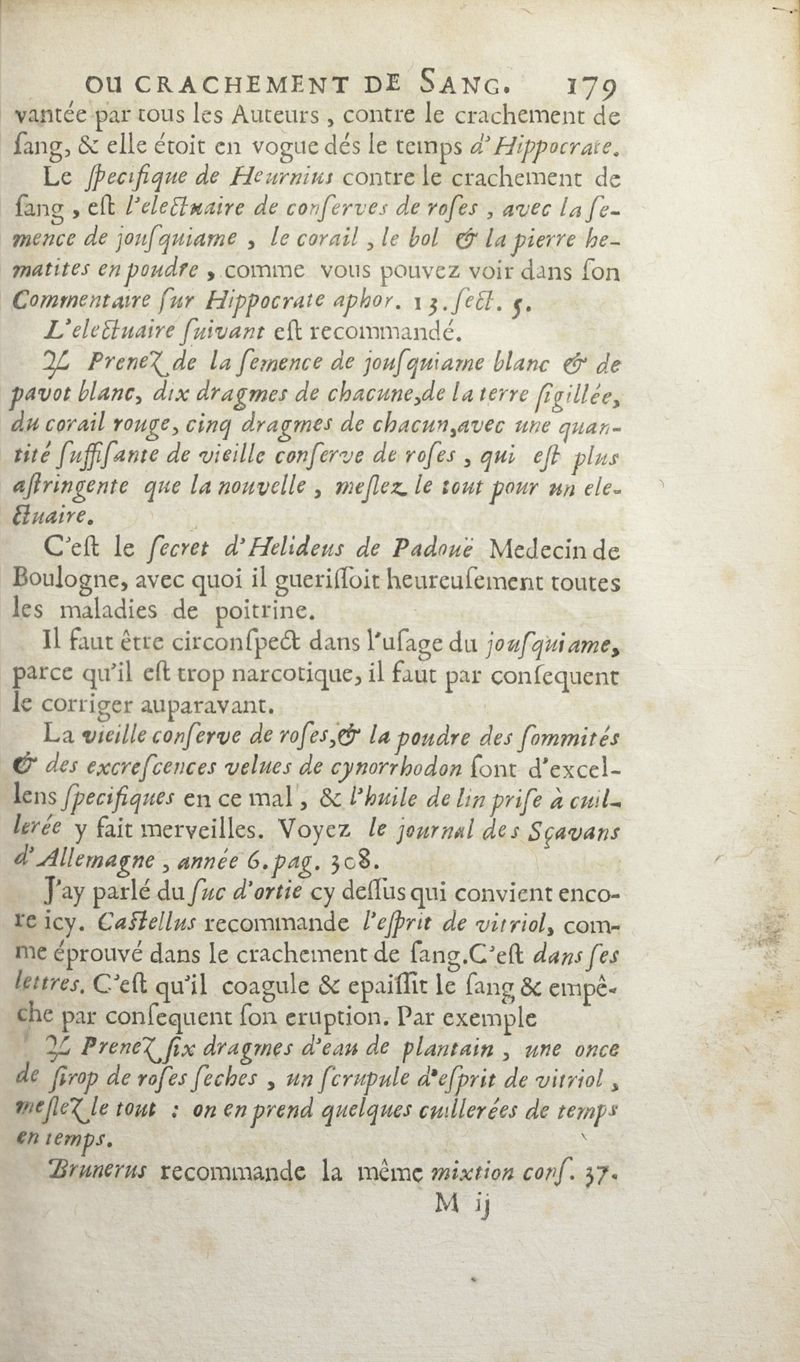 OU CRACHEMENT DE SANG. 179
vantée par tous les Auteurs, contre le crachement de
ſang, & elle étoit en vogue dés le temps d'Hippocrate.
Le ſpecifique de Heurnius contre le crachement de
ſang, eſt l'electuaire de conſerves de roſes, avec la ſe-
mence de jouſquiame, le corail, le bol & la pierre he-
matites en poudre, comme vous pouvez voir dans ſon
Commentaire ſur Hippocrate aphor. 13. ſect. 5.
L'electuaire ſuivant eſt recommandé.
℞ Prenez de la ſemence de jouſquiame blanc & de
pavot blanc, dix dragmes de chacune, de la terre ſigillée,
du corail rouge, cinq dragmes de chacun, avec une quan-
tité ſuffiſante de vieille conſerve de roſes, qui eſt plus
aſtringente que la nouvelle, meſlez le tout pour un ele-
ctuaire.
C'eſt le ſecret d'Helideus de Padouë Medecin de
Boulogne, avec quoi il gueriſſoit heureuſement toutes
les maladies de poitrine.
Il faut être circonſpect dans l'uſage du jouſquiame,
parce qu'il eſt trop narcotique, il faut par conſequent
le corriger auparavant.
La vieille conſerve de roſes, & la poudre des ſommités
& des excreſcences velues de cynorrhodon ſont d'excel-
lens ſpecifiques en ce mal, & l'huile de lin priſe à cuil-
lerée y fait merveilles. Voyez le journal des Sçavans
d'Allemagne, année 6. pag. 308.
J'ay parlé du ſuc d'ortie cy deſſus qui convient enco-
re icy. Caſtellus recommande l'eſprit de vitriol, com-
me éprouvé dans le crachement de ſang. C'eſt dans ſes
lettres. C'eſt qu'il coagule & epaiſſit le ſang & empê-
che par conſequent ſon eruption. Par exemple
℞ Prenez ſix dragmes d'eau de plantain, une once
de ſirop de roſes ſeches, un ſcrupule d'eſprit de vitriol,
meſlez le tout : on en prend quelques cuillerées de temps
en temps.
Brunerus recommande la même mixtion conſ. 37.
M ij